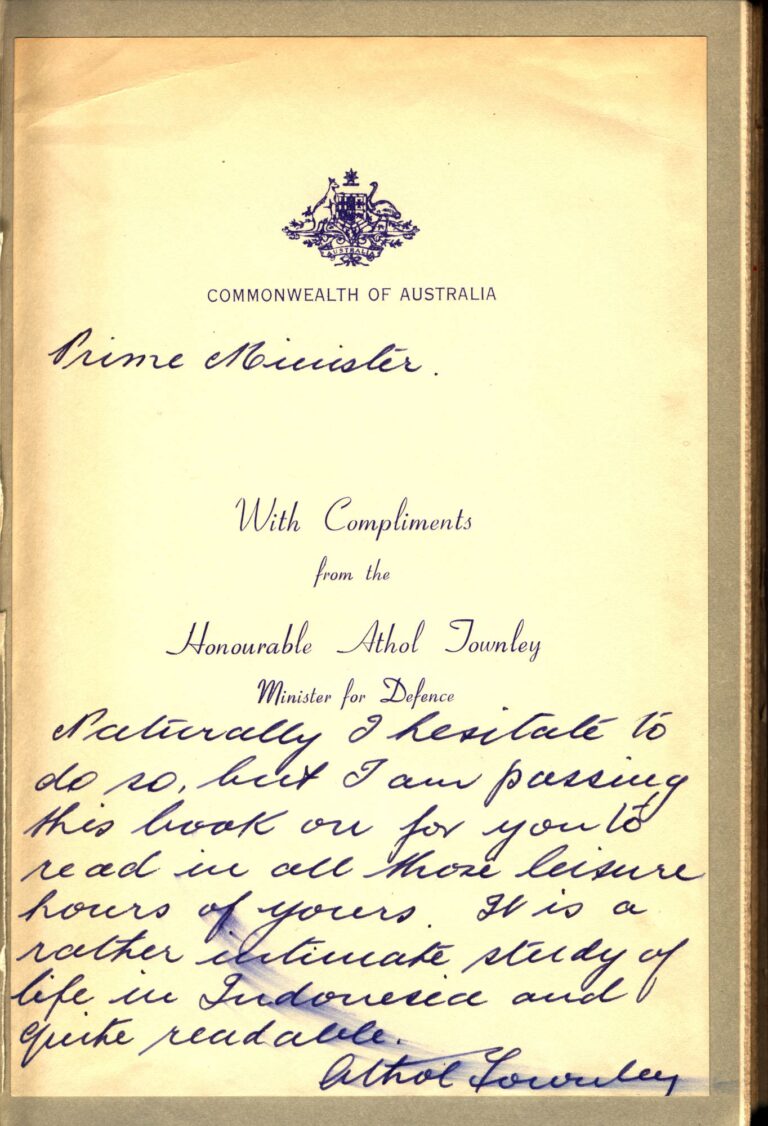 AUSTRALIA
COMMONWEALTH OF AUSTRALIA
Prime Minister.
With Compliments
from the
Honourable Athol Townley
Minister for Defence
Naturally I hesitate to
do so, but I am passing
this book on for you to
read in all those leisure
hours of yours. It is a
rather intimate study of
life in Indonesia and
quite readable.
Athol Townley